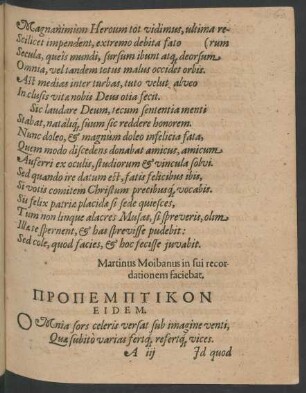 Magnanimûm Heroum tot vidimus, ultima re-
Scilicet impendent, extremo debita fato (rum
Secula, queis mundi, sursum ibunt atq; deorsum
Omnia, vel tandem totus malus occidet orbis.
Ast medias inter turbas, tuto velut alveo
Inclusis vita nobis Deus otia fecit.
Sic laudare Deum, tecum sententia menti
Stabat, nataliq; suum sic reddere honorem.
Nunc doleo, & magnum doleo infelicia fata,
Quem modo discedens donabat amicus, amicum
Auferri ex oculis, studiorum & vincula solvi.
Sed quando ire datum est, fatis felicibus ibis,
Si votis comitem Christum precibusq; vocabis.
Sis felix patriæ placida si sede quiesces,
Tum non linque alacres Musas, si spreveris, olim
Illæ te spernent, & has sprevisse pudebit:
Sed cole, quod facies, & hoc fecisse juvabit.
Martinus Moibanus in sui recor-
dationem faciebat.
ΠΡΟΠΕΜΠΤΙΚΟΝ
EIDEM.
OMnia sors celeris versat sub imagine venti,
Quæ subitò varias fertq́; refertq́; vices.
A iij Id quod